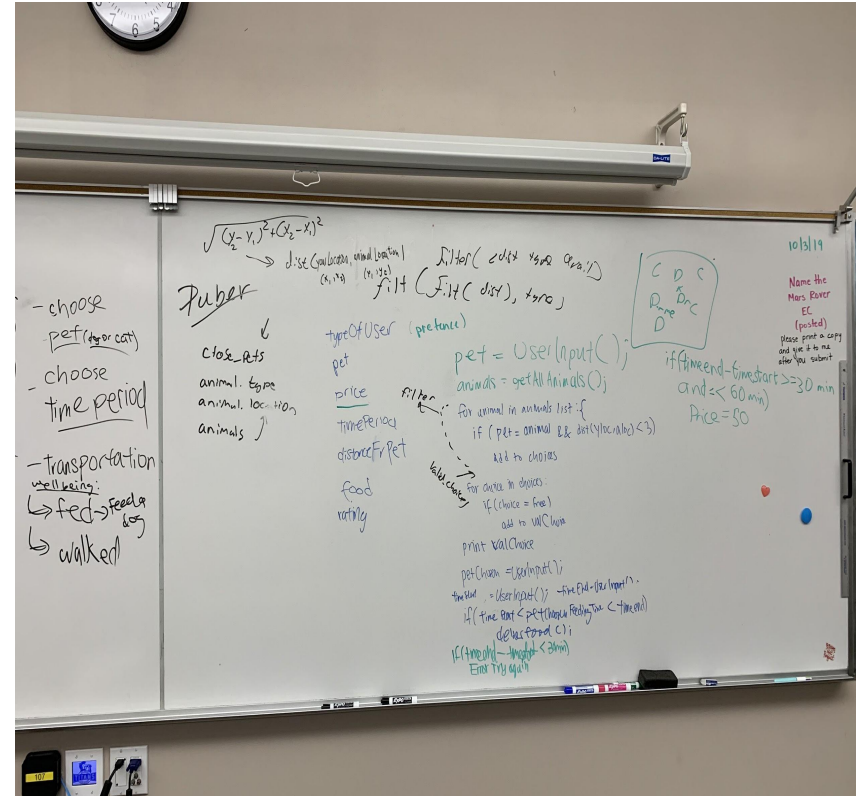 7 6 5 4
DA-LITE
- choose
pet (dog or cat)
- choose
time period
- transportation
well being:
↳ fed → feed a dog
↳ walked
√(y₂-y₁)²+(x₂-x₁)²
→ dist (your location, animal location)
(x₁, x₂) (y₁, y₂)
filter( dist
filt (filt( dist),
Puber
close_pets
animal. type
animal. location
animals
typeOfUser (pretence)
pet
price
timePeriod
distanceFrPet
food
rating
pet = UserInput();
animals = getAllAnimals();
filter
for animal in animals list :{
if ( pet = animal && dist(yloc,aloc) < 3)
add to choices
valid choices
for choice in choices:
if (choice = free)
add to valChoice
print valChoice
petChosen = UserInput();
time start = UserInput(); timeEnd = UserInput();
if( time start < petChosen FeedingTime < timeend)
if(timeend - timestart < 30min)
Error Try again
C D C
D D C
D
if(timeend-timestart >= 30 min
and =< 60 min)
Price = 50
10/3/19
Name the
Mars Rover
EC
(posted)
please print a copy
and give it to me
after you submit
EXPO
EXPO
107
TITANS